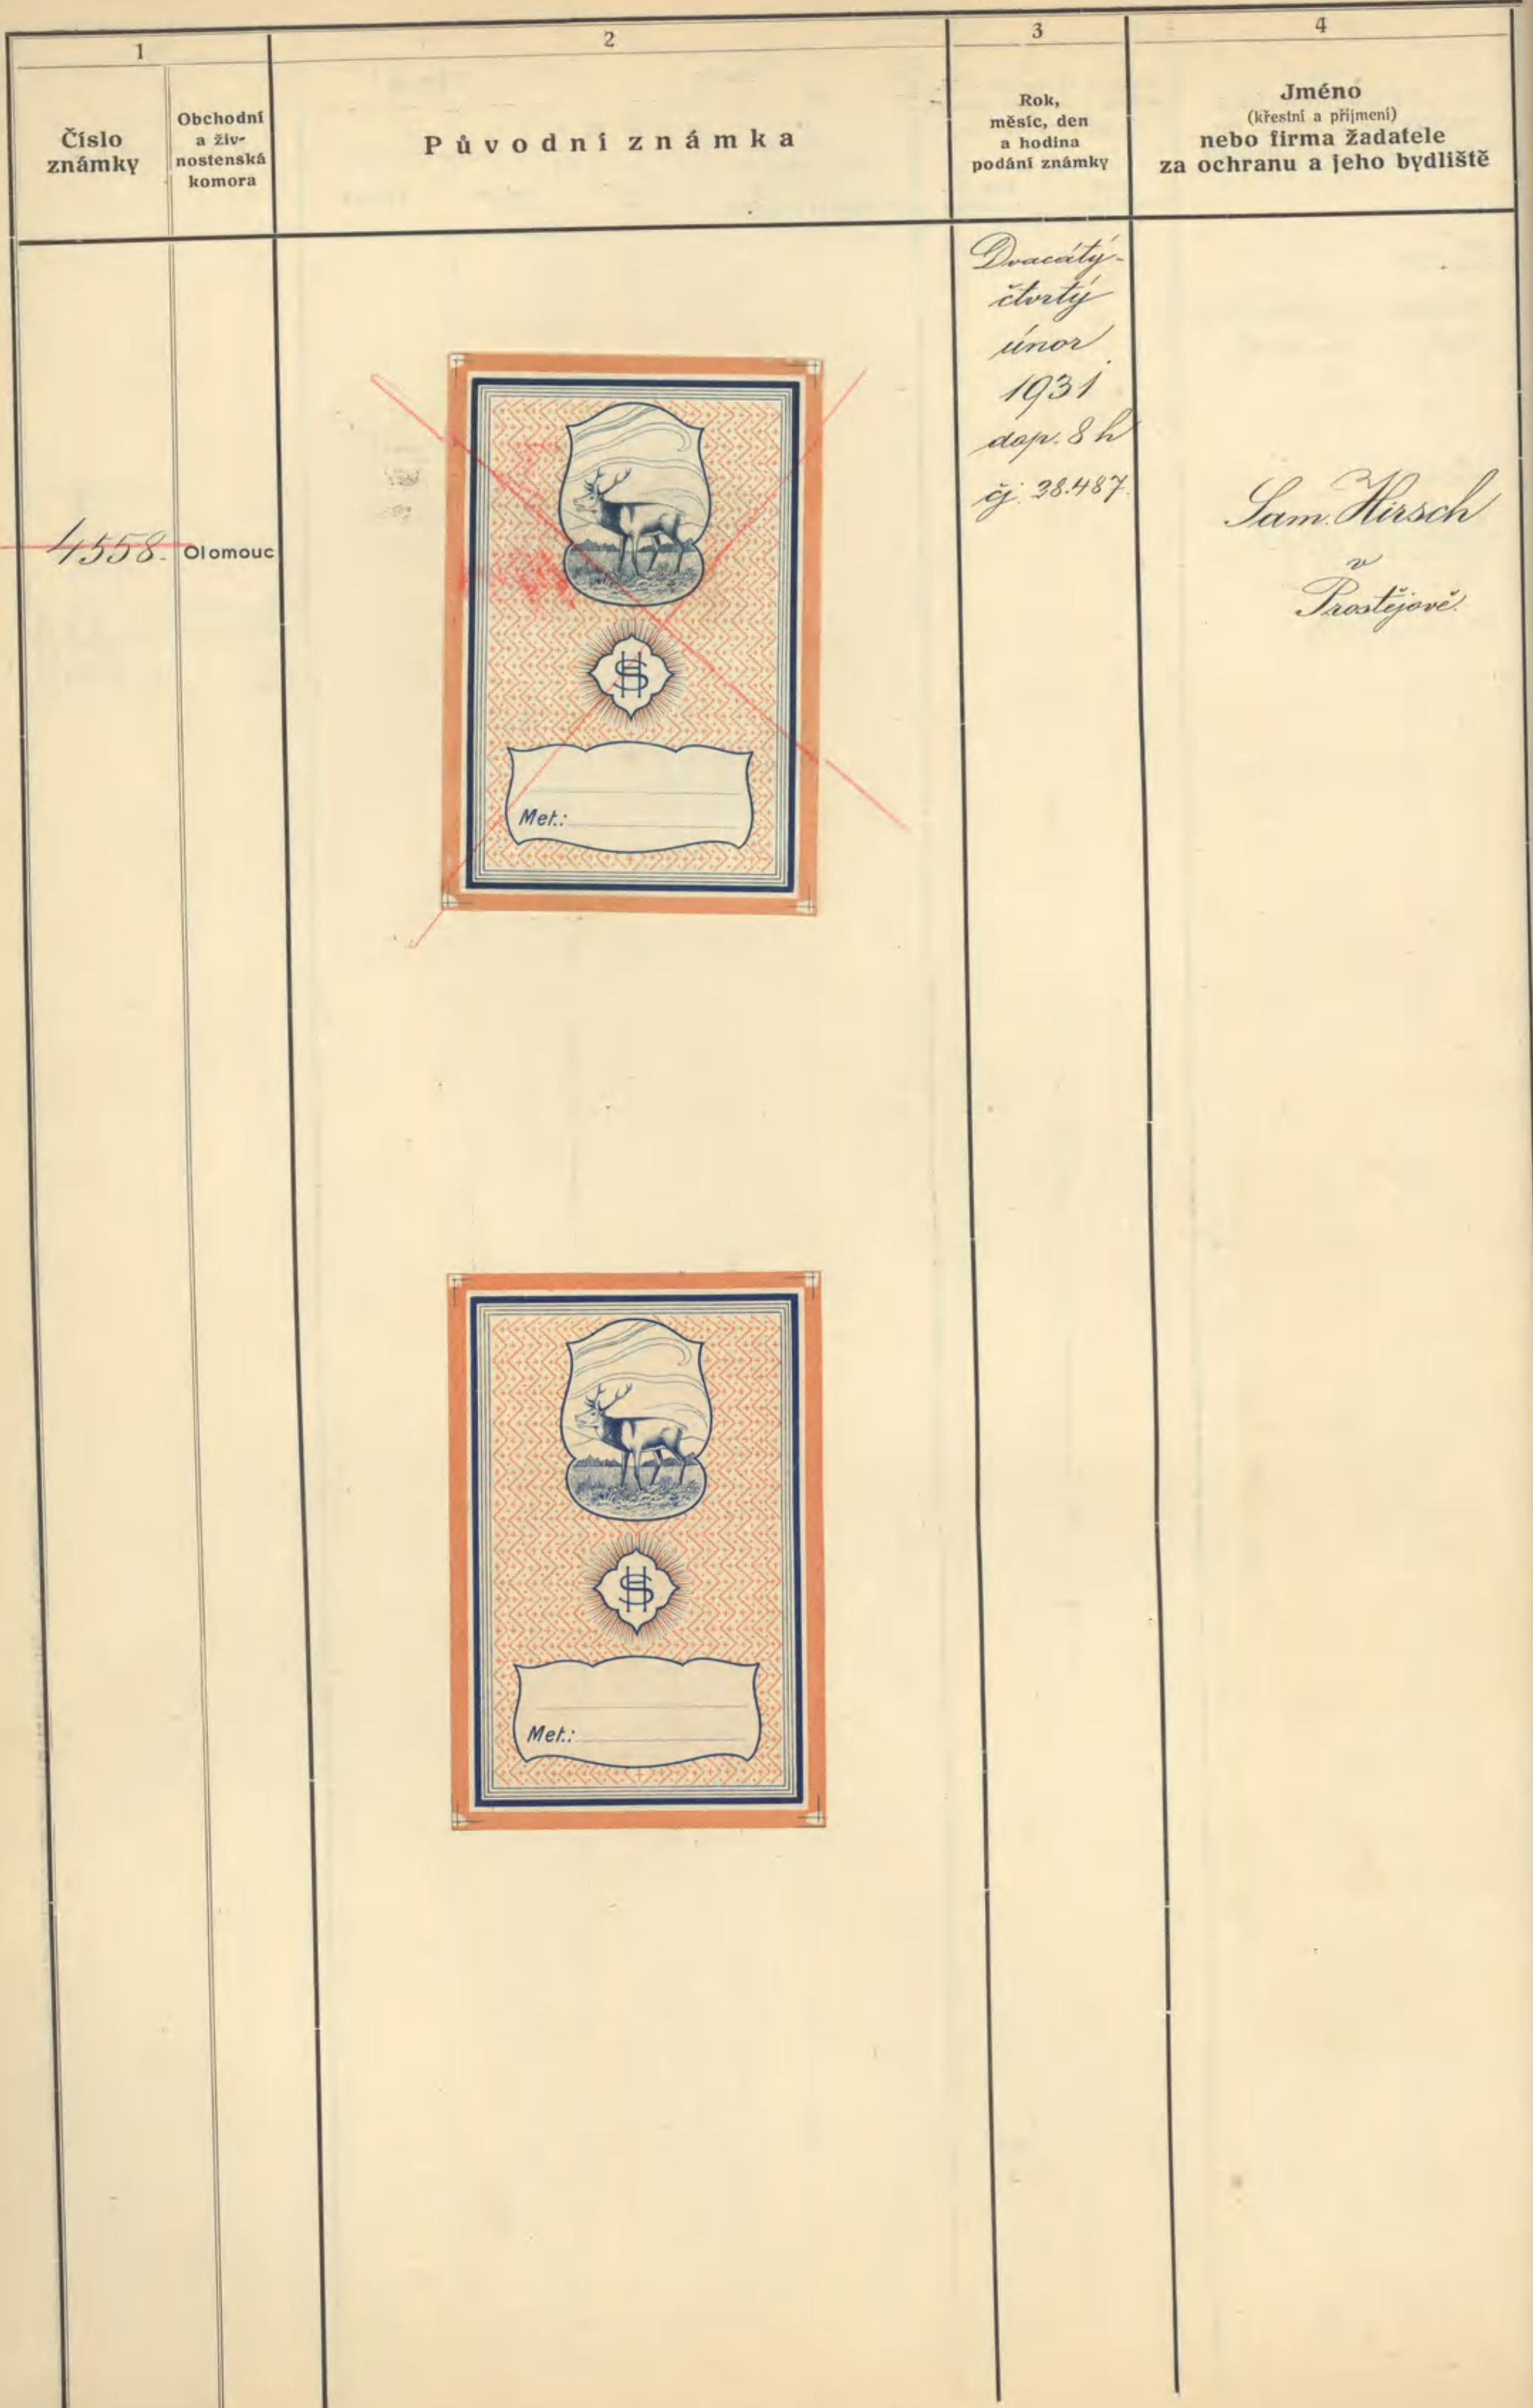 1
2
3
4
Číslo
známky
Obchodní
a živ-
nostenská
komora
Původní známka
Rok,
měsíc, den
a hodina
podání známky
Jméno
(křestní a příjmení)
nebo firma žadatele
za ochranu a jeho bydliště
4558.
Olomouc
Dvacátý-
čtvrtý
únor
1931
dop. 8 h
čj. 28.487.
Sam. Hirsch
v
Prostějově.
SH
Met.:
SH
Met.: